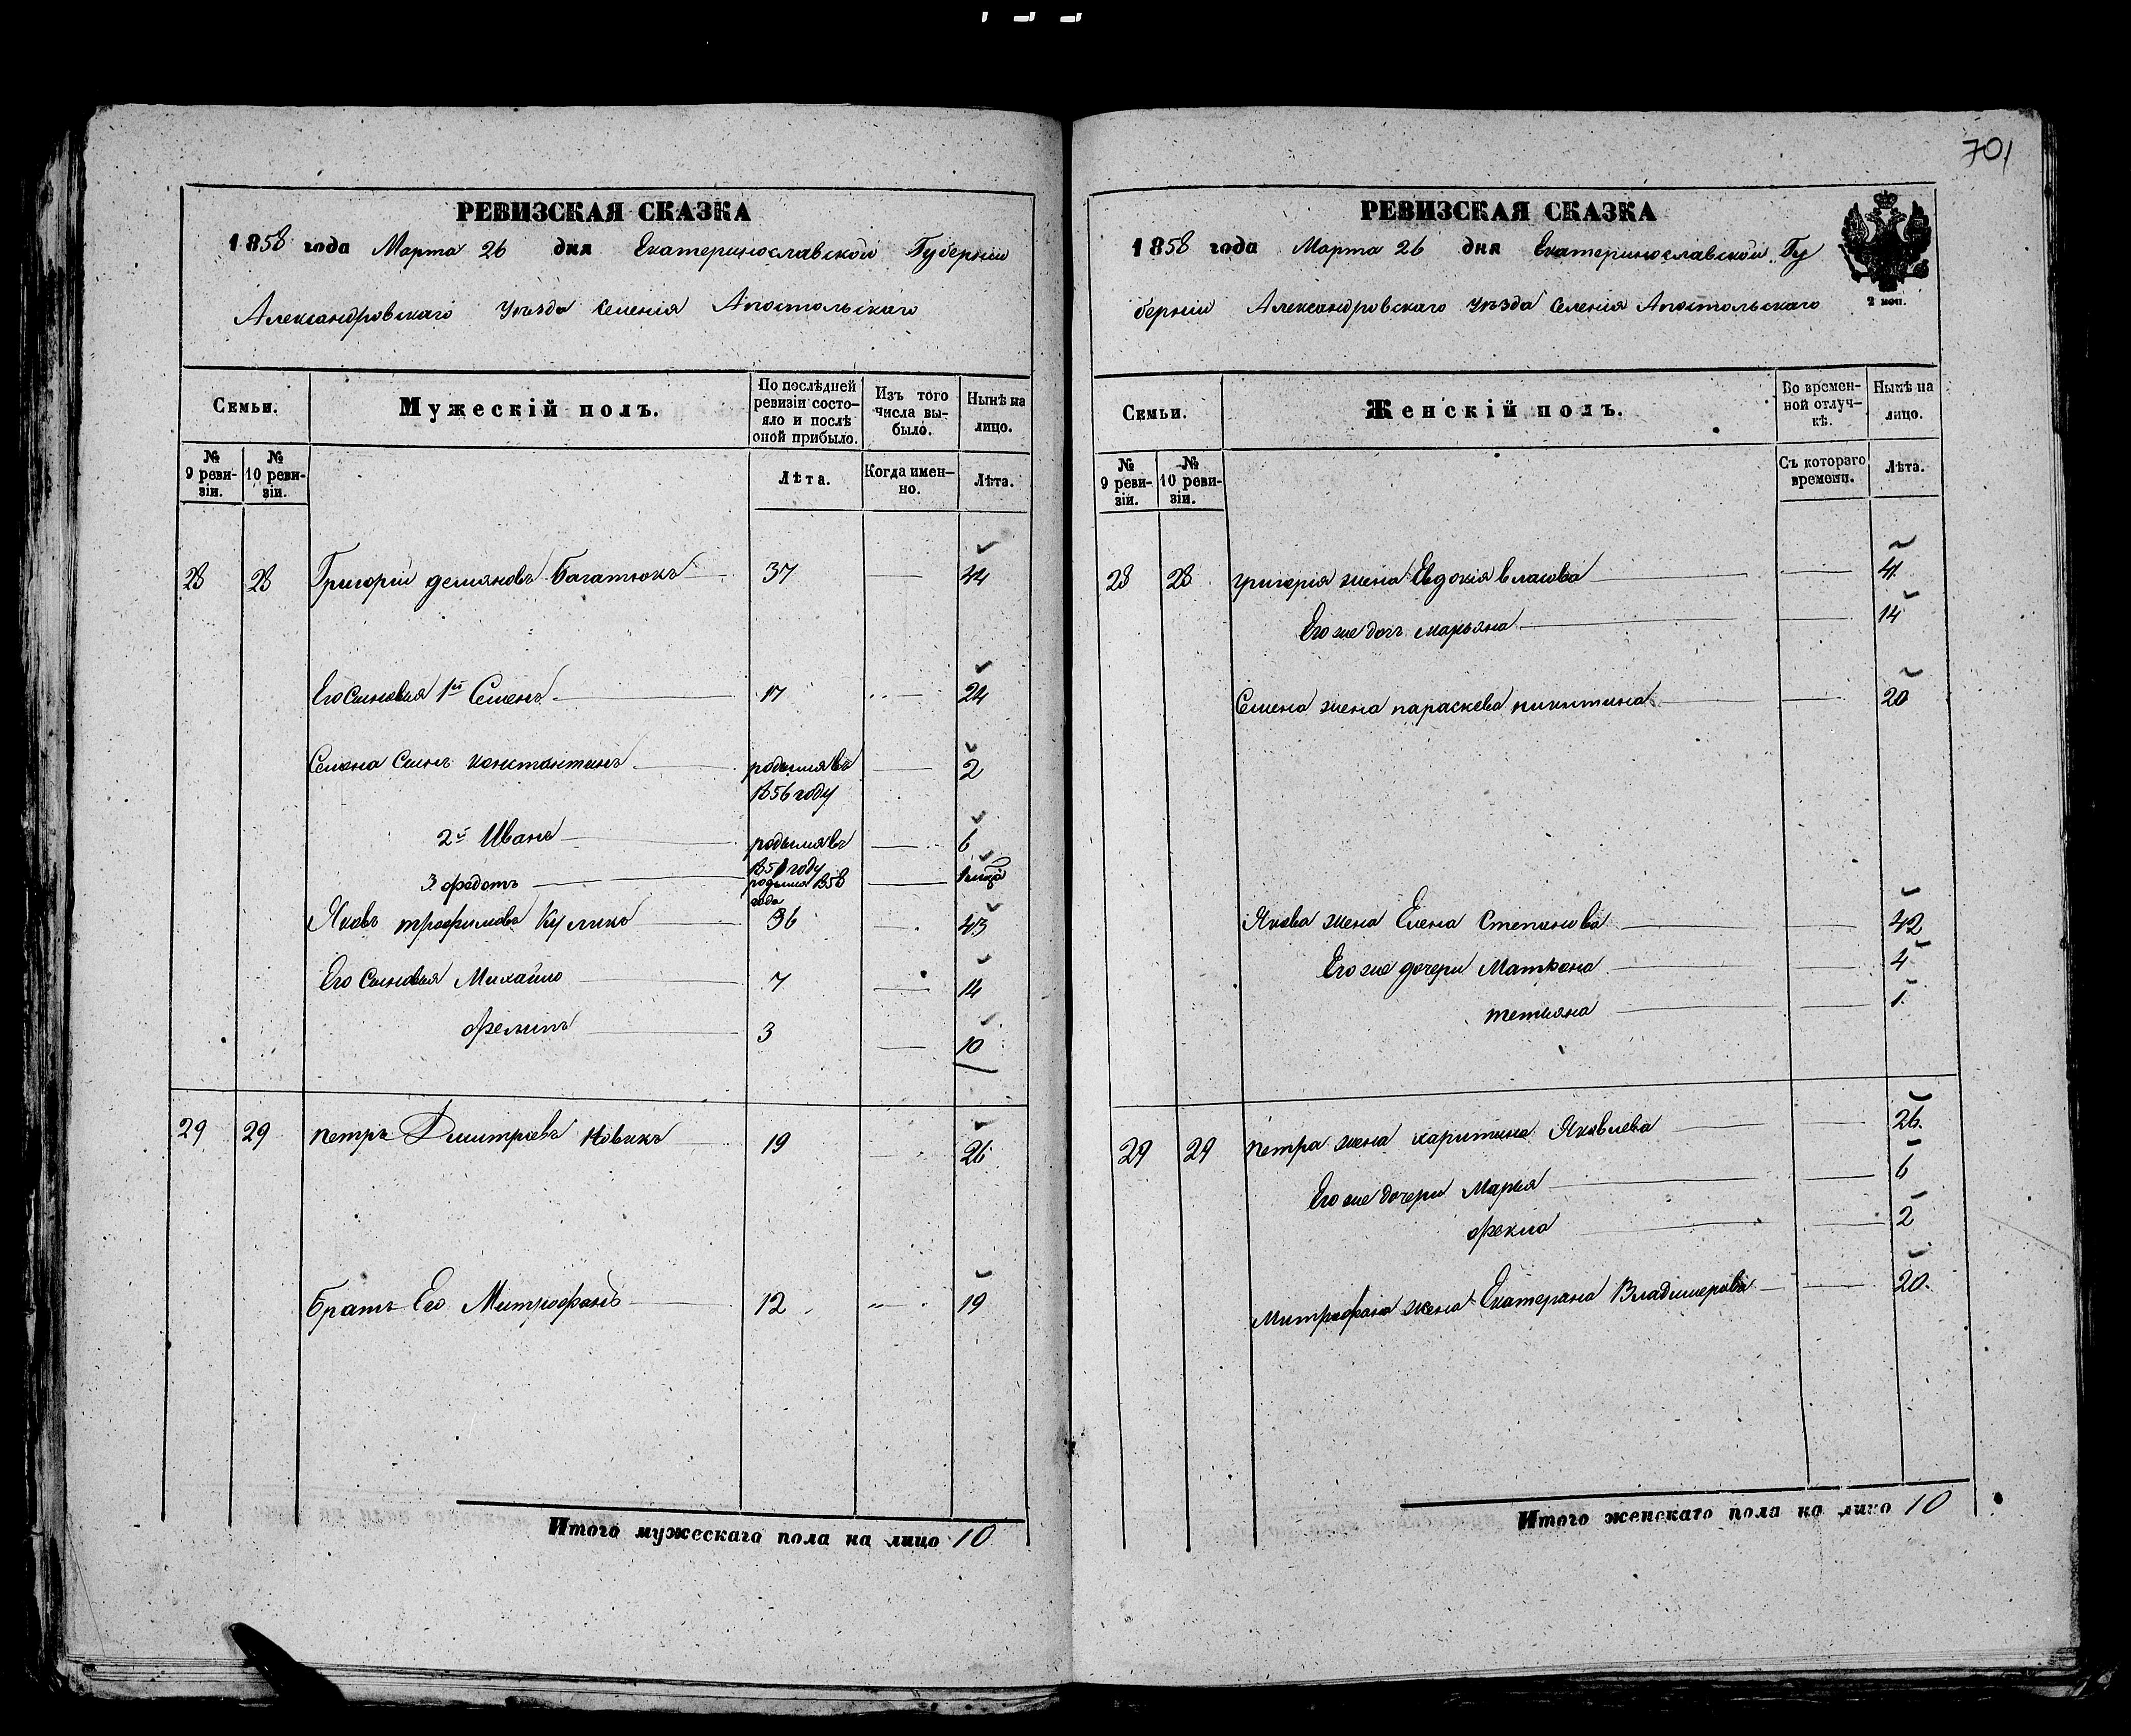 701
РЕВИЗСКАЯ СКАЗКА
1858 года Марта 26 дня Екатеринославской Губерніи
Александровскаго Уѣзда селенія Апостольскаго
Семьи.
Мужескій полъ.
По послѣдней ревизіи состо-
яло и послѣ
оной прибыло.
Изъ того
числа вы-
было.
Нынѣ на
лицо.
№
9 реви-
зіи.
№
10 реви-
зіи.
Лѣта.
Когда имен-
но.
Лѣта.
28 28 Григорій демяновъ Багатюкъ 37 44
Его сыновья 1й Семенъ 17 24
Семена сынъ константинъ родился въ 2
1856 году
2й Иванъ родился въ 6
1851 году
3 федотъ родился 1858
года
Яковъ трофимовъ Куликъ 36 43
Его сыновья Михайло 7 14
филипъ 3 10
29 29 петръ Дмитріевъ Новикъ 19 26
братъ Его Митрофанъ 12 19
Итого мужескаго пола на лицо 10
РЕВИЗСКАЯ СКАЗКА
1858 года Марта 26 дня Екатеринославской Гу
берніи Александровскаго Уѣзда селенія Апостольскаго
2 коп.
Семьи.
Женскій полъ.
Во времен-
ной отлуч-
кѣ.
Нынѣ на
лицо.
№
9 реви-
зіи.
№
10 реви-
зіи.
Съ котораго
времени.
Лѣта.
28 28 григорія жена Евдокія власова 41
Его же доч марьяна 14
Семена жена параскева никитина 20
Якова жена Елена Степанова 42
Его же дочери Матрона 4
тетьяна 1
29 29 петра жена харитина Яковлева 26
Его же дочери Марья 6
фекла 2
Митрофана жена Екатерана Владимерова 20
Итого женскаго пола на лицо 10